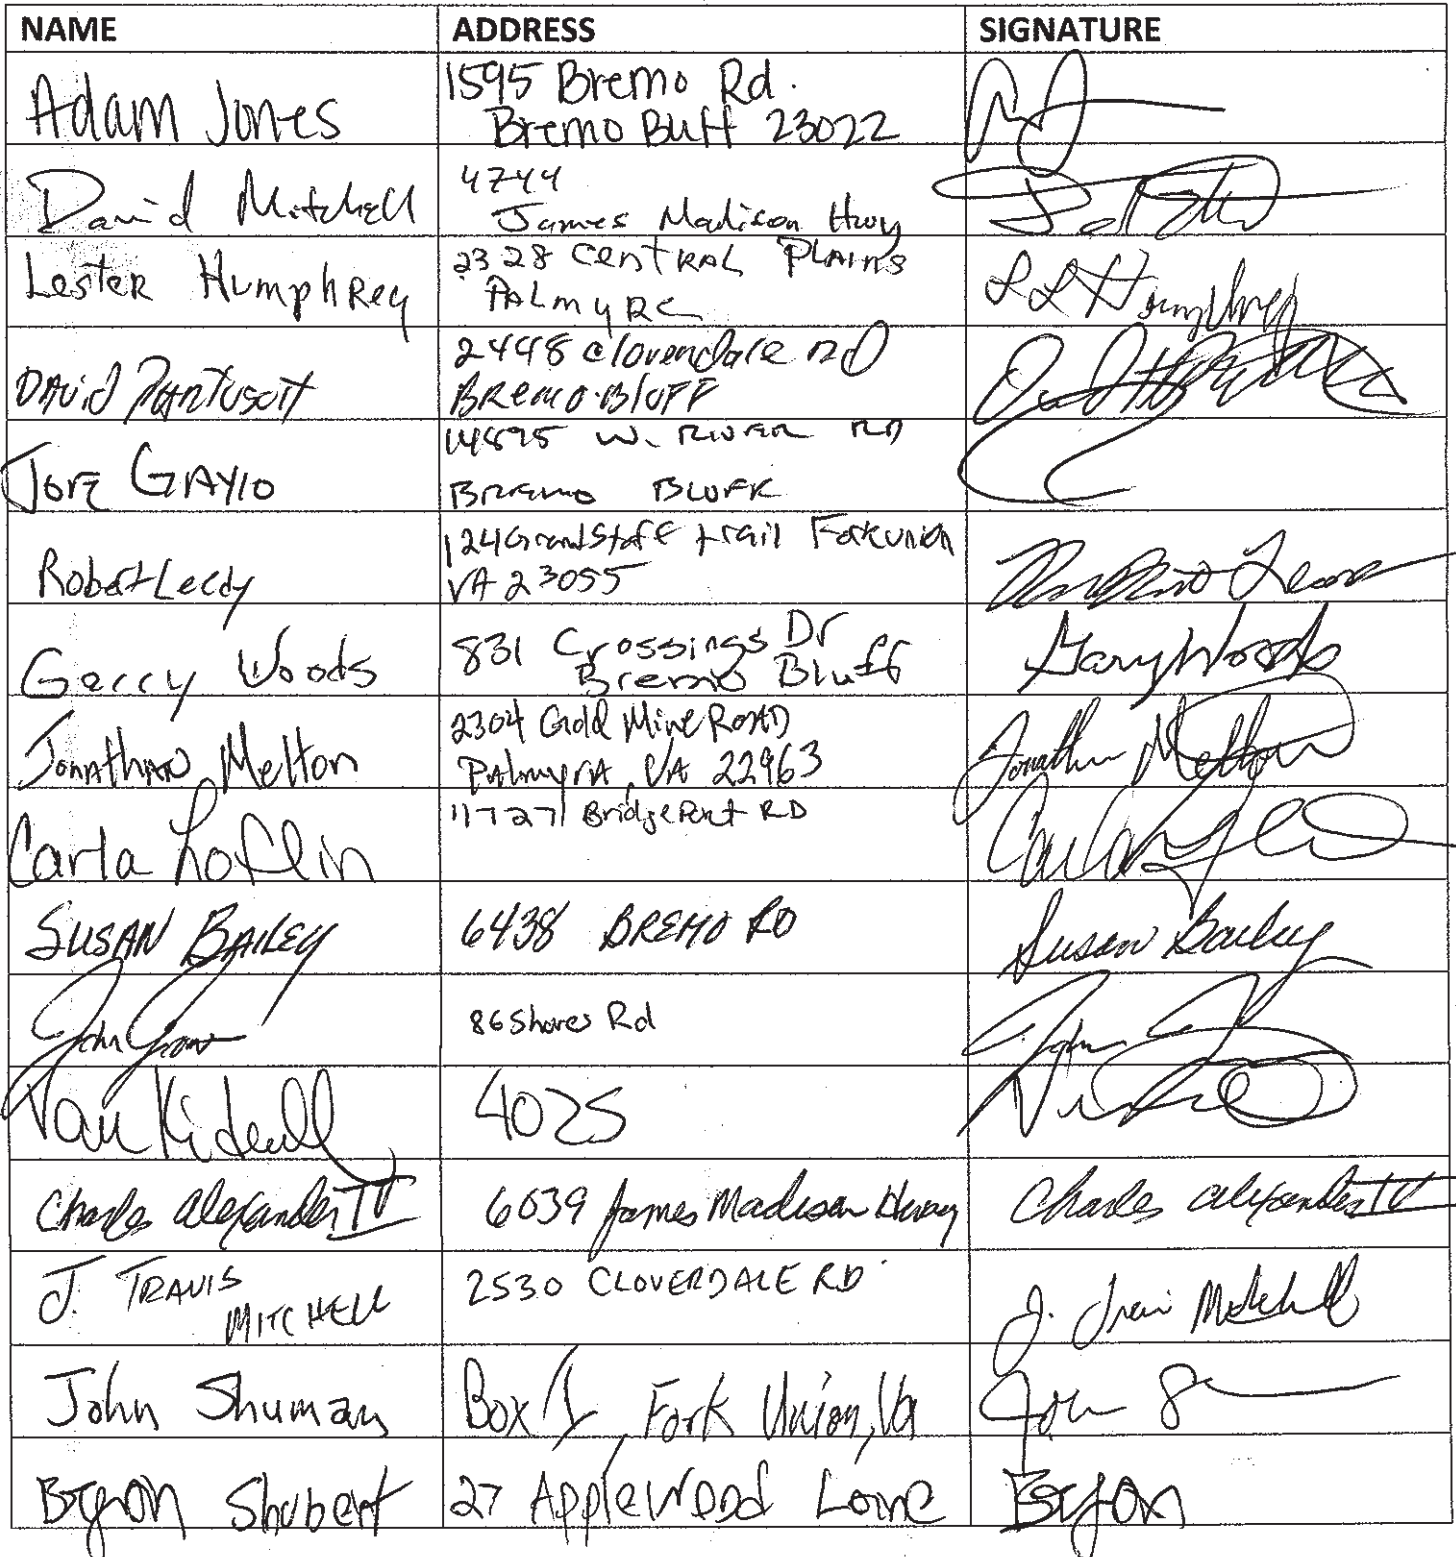 NAME ADDRESS SIGNATURE
Adam Jones 1595 Bremo Rd.
Bremo Buff 23022
David Mitchell 4744
James Madison Hwy
Lester Humphrey 2328 Central Plains
Palmyra L L Humphrey
David 2448 Cloverdale RD
Bremo Bluff
14895 W. River RD
Bremo Bluff
Robert Leedy 124 Grandstaff trail Fork union
VA 23055
Woods 831 Crossings Dr
Bremo Bluff Gary Woods
Jonathan Melton 2304 Gold Mine Road
Palmyra, VA 22963 Jonathan Melton
Carla Loflin Rd Carla
Susan Bailey 6438 Bremo Rd Susan Bailey
John 86 Shores Rd John
Van Kidwell 4025
Charles Alexander IV 6039 James Madison Hway Charles Alexander IV
J. Travis
Mitchell 2530 Cloverdale Rd J. Travis Mitchell
John Shuman Box 1, Fork Union, Va John S
Byron Shubert 27 Applewood Lane Byron